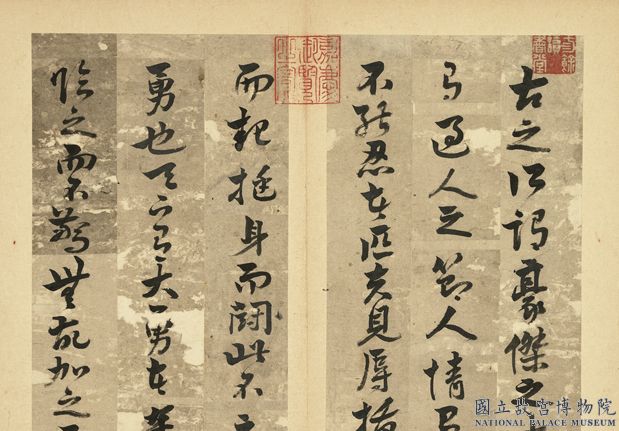 古之所謂豪傑之
有過人之節人情有
不能忍者匹夫見辱拔
而起挺身而鬬此不
勇也天下有大勇者
臨之而不驚無故加之
嘉慶御覽之寶
國立故宮博物院
NATIONAL PALACE MUSEUM